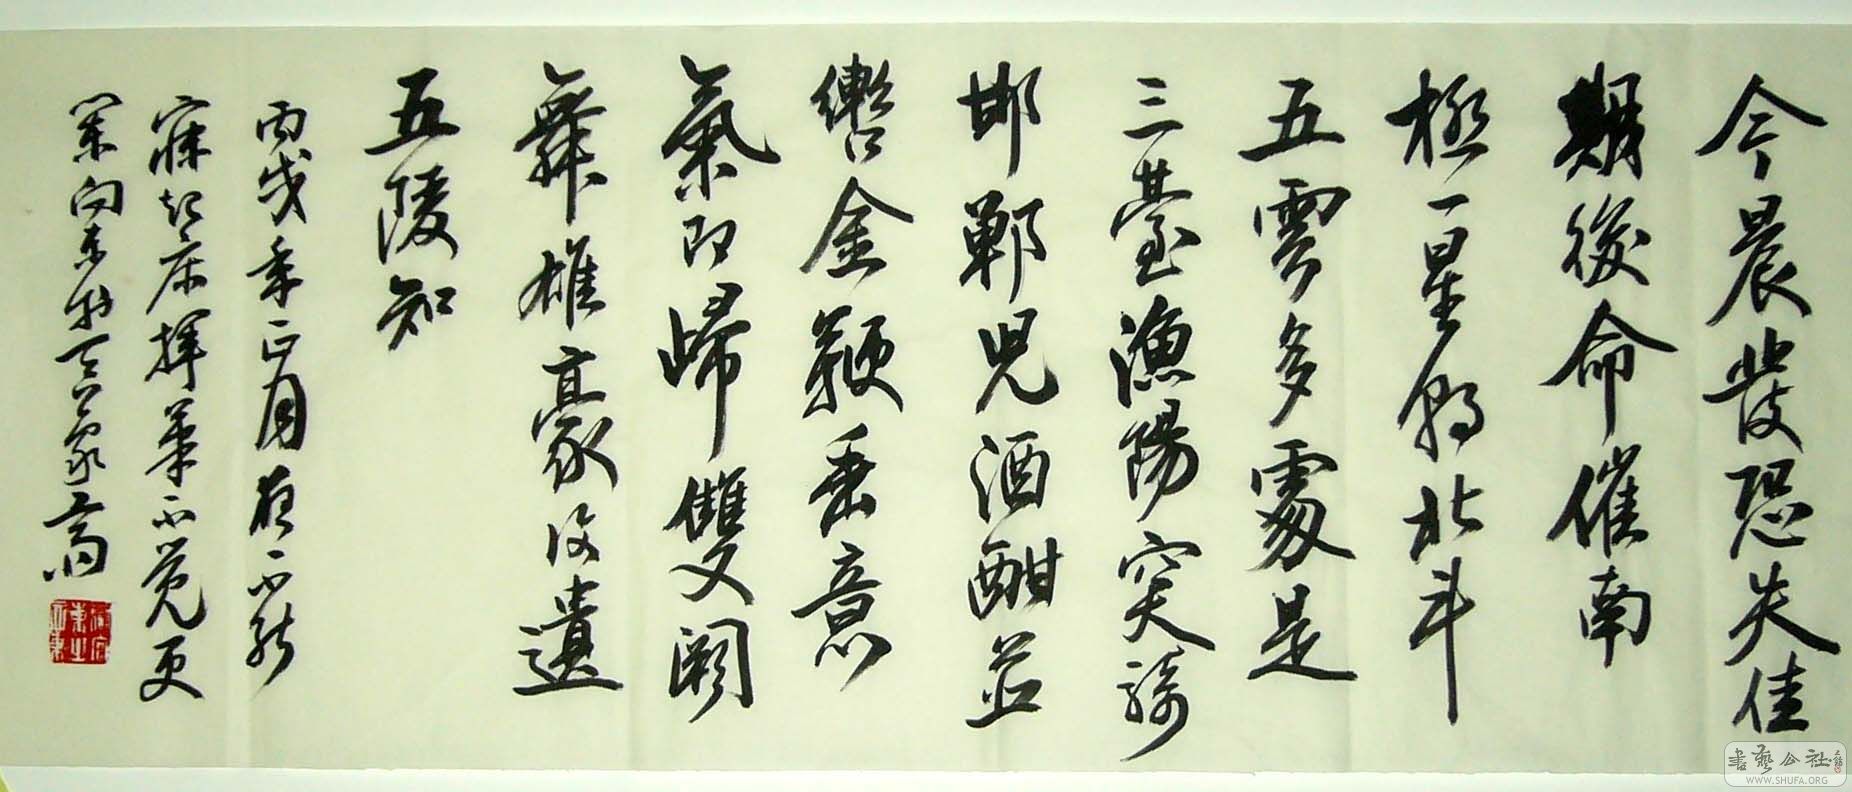 今晨發恐失佳
期後命催南
極一星朝北斗
五雲多處是
三臺漁陽突騎
邯鄲兒酒酣並
轡金鞭垂意
氣即歸雙闕
舞雄豪復遣
五陵知
丙戌年正月夜不能
寐起床揮筆不覺更
闌向東於齋
書藝公社
WWW.SHUFA.ORG